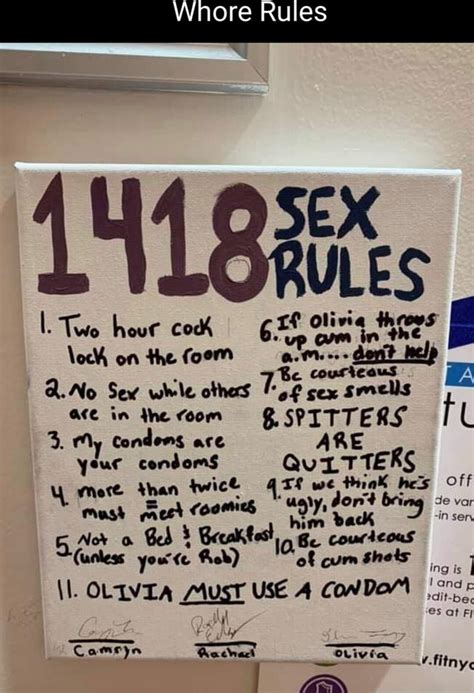 Whore Rules
1418 SEX
RULES
1. Two hour cock
lock on the room
2. No Sex while others
are in the room
3. My condoms are
your condoms
4. more than twice
= must meet roomies
5. Not a Bed & Breakfast
(unless you're Rob)
6. If Olivia throws
up cum in the
a.m.... don't help
7. Be courteous
of sex smells
8. SPITTERS
ARE
QUITTERS
9. If we think he's
ugly, don't bring
him back
10. Be courteous
of cum shots
11. OLIVIA MUST USE A CONDOM
Camryn
Rachael
Olivia
A
tu
off
de var
-in serv
ing is
l and p
edit-bec
es at FI
v.fitnyc